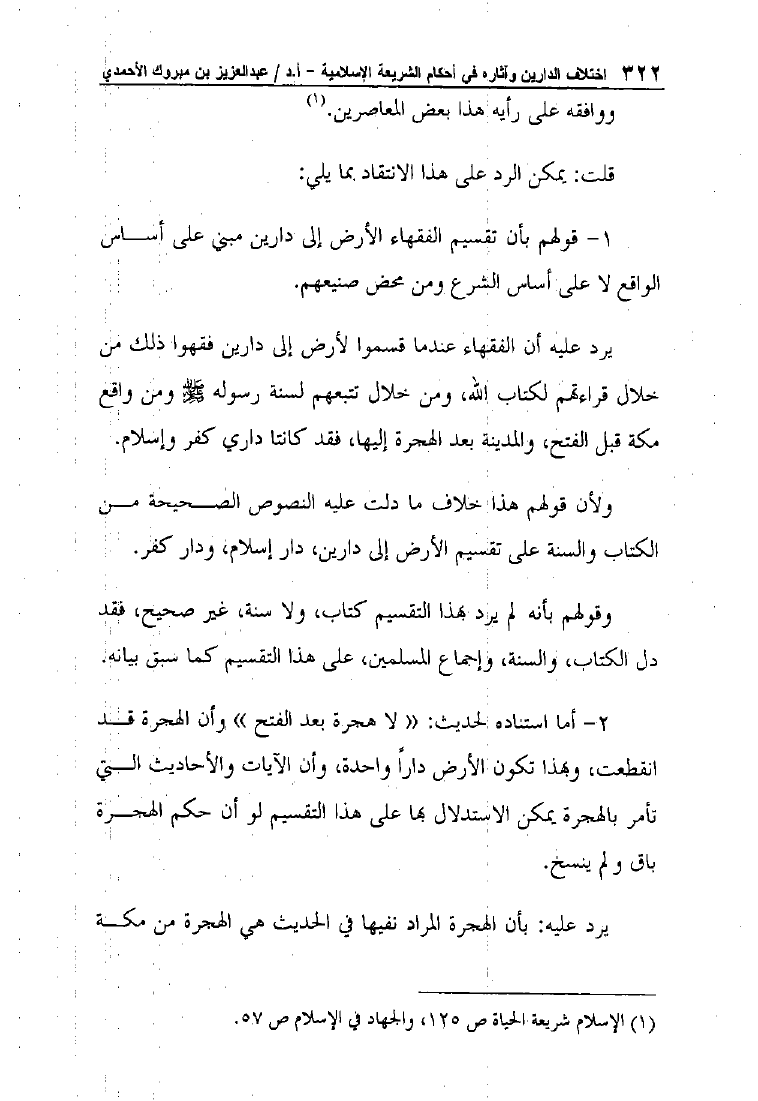 ٣٢٢ اختلاف الدارين وآثاره في أحكام الشريعة الإسلامية - أ.د / عبدالعزيز بن مبروك الأحمدي
ووافقه على رأيه هذا بعض المعاصرين.(١)
قلت: يمكن الرد على هذا الانتقاد بما يلي:
١- قولهم بأن تقسيم الفقهاء الأرض إلى دارين مبني على أساس
الواقع لا على أساس الشرع ومن محض صنيعهم.
يرد عليه أن الفقهاء عندما قسموا لأرض إلى دارين فقهوا ذلك من
خلال قراءتهم لكتاب الله، ومن خلال تتبعهم لسنة رسوله ﷺ ومن واقع
مكة قبل الفتح، والمدينة بعد الهجرة إليها، فقد كانتا داري كفر وإسلام.
ولأن قولهم هذا خلاف ما دلت عليه النصوص الصحيحة من
الكتاب والسنة على تقسيم الأرض إلى دارين، دار إسلام، ودار كفر.
وقولهم بأنه لم يرد بهذا التقسيم كتاب، ولا سنة، غير صحيح، فقد
دل الكتاب، والسنة، وإجماع المسلمين، على هذا التقسيم كما سبق بيانه.
٢- أما استناده لحديث: « لا هجرة بعد الفتح » وأن الهجرة قد
انقطعت، وبهذا تكون الأرض داراً واحدة، وأن الآيات والأحاديث التي
تأمر بالهجرة يمكن الاستدلال بها على هذا التقسيم لو أن حكم الهجرة
باق ولم ينسخ.
يرد عليه: بأن الهجرة المراد نفيها في الحديث هي الهجرة من مكة
(١) الإسلام شريعة الحياة ص ١٢٥، والجهاد في الإسلام ص ٥٧.